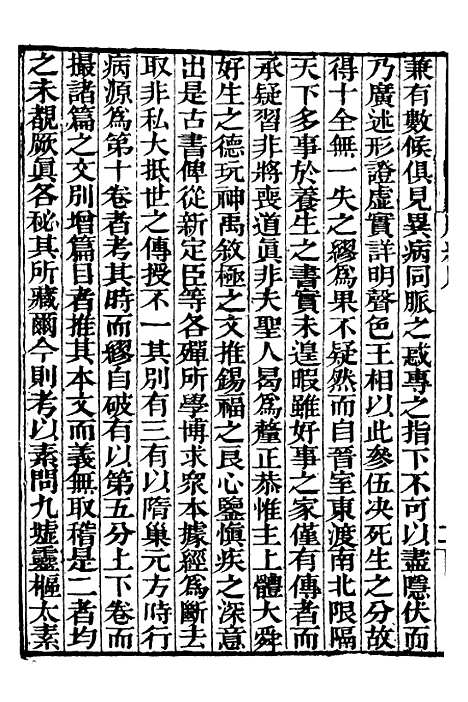 兼有數候俱見異病同脈之惑專之指下不可以盡隱伏而
乃廣述形證虛實詳明聲色王相以此參伍決死生之分故
得十全無一失之繆爲果不疑然而自晉室東渡南北限隔
天下多事於養生之書實未遑暇雖好事之家僅有傳者而
承疑習非將喪道眞非夫聖人曷爲釐正恭惟主上體大舜
好生之德玩神禹敘極之文推錫福之良心鑒慎疾之深意
出是古書俾從新定臣等各殫所學博求衆本據經爲斷去
取非私大抵世之傳授不一其別有三有以隋巢元方時行
病源爲第十卷者考其時而繆自破有以第五分上下卷而
撮諸篇之文別增篇目者推其本文而義無取稽是二者均
之未覩厥眞各秘其所藏爾今則考以素問九墟靈樞太素